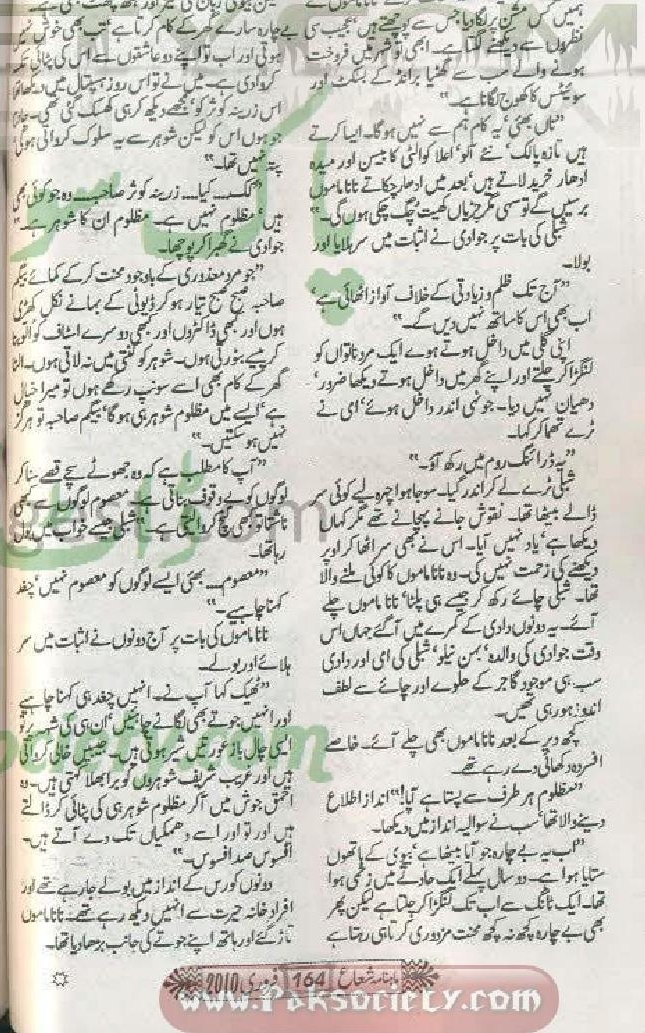 ہمیں کس مشین پر لگا دیا جس سے پوچھتے ہیں عجیب سی
نظروں سے دیکھنے لگتا ہے۔ ابھی تو شہر میں فروخت
ہونے والے سب سے گھٹیا برانڈ کے بسکٹ اور
سوئیٹس کا کھوج لگانا ہے۔"
"ناں بھئی' یہ کام ہم سے نہیں ہو گا۔ ایسا کرتے
ہیں تازہ پالک' نئے آلو' اعلا کوالٹی کا بیسن اور میدہ
ادھار خرید لاتے ہیں' بعد میں ادھار چکاتے نانا ماموں
برسیں گے تو سہی مگر چڑیاں کھیت چگ چکی ہوں گی۔"
شبلی کی بات پر جوادی نے اثبات میں سر ہلایا اور
بولا۔
"آج تک ظلم و زیادتی کے خلاف آواز اٹھائی ہے'
اب بھی اس کا ساتھ نہیں دیں گے۔"
اپنی گلی میں داخل ہوتے ہوے ایک مرد ناتواں کو
لنگڑا کر چلتے اور اپنے گھر میں داخل ہوتے دیکھا ضرور'
دھیان نہیں دیا۔ جونہی اندر داخل ہوئے' امی نے
ٹرے تھما کر کہا۔
"یہ ڈرائنگ روم میں رکھ آؤ۔"
شبلی ٹرے لے کر اندر گیا۔ سوجا ہوا چہرہ لیے کوئی سر
ڈالے بیٹھا تھا۔ نقوش جانے پہچانے تھے مگر کہاں
دیکھا ہے' یاد نہیں آیا۔ اس نے بھی سر اٹھا کر اوپر
دیکھنے کی زحمت نہیں کی۔ وہ نانا ماموں کا کوئی ملنے والا
تھا۔ شبلی چائے رکھ کر جیسے ہی پلٹا' نانا ماموں چلے
آئے۔ یہ دونوں دادی کے کمرے میں آگئے جہاں اس
وقت جوادی کی والدہ' بہن نیلو' شبلی کی امی اور دادی
سب ہی موجود گاجر کے حلوے اور چائے سے لطف
اندوز ہو رہی تھیں۔
کچھ دیر کے بعد نانا ماموں بھی چلے آئے۔ خاصے
افسردہ دکھائی دے رہے تھے۔
"مظلوم ہر طرف سے پستا ہے آپا!" انداز اطلاع
دینے والا تھا' سب نے سوالیہ انداز میں دیکھا۔
"اب یہ بے چارہ جو آیا بیٹھا ہے' بیوی کے ہاتھوں
ستایا ہوا ہے۔ دو سال پہلے ایک حادثے میں زخمی ہوا
تھا۔ ایک ٹانگ سے اب تک لنگڑا کر چلتا ہے لیکن پھر
بھی بے چارہ کچھ نہ کچھ محنت مزدوری کرتا ہی رہتا ہے
بے چارہ سارے گھر کے کام کرتا ہے' تب بھی خوش نہیں
ہوتی اور اب تو اپنے دو عاشقوں سے اس کی پٹائی بھی
کروا دی ہے۔ میں نے تو اس روز ہسپتال میں دیکھا تھا
اس زرینہ کوثر کو' مجھے دیکھ کر ہی کھسک گئی تھی۔ جانتا
جو ہوں اس کو لیکن شوہر سے یہ سلوک کرواتی ہو گی'
پتہ نہیں تھا۔"
"کک.... کیا.... زرینہ کوثر صاحبہ.... وہ جو کوئی بھی
ہیں' مظلوم نہیں ہے۔ مظلوم ان کا شوہر ہے۔"
جوادی نے گھبرا کر پوچھا۔
"جو مرد معذوری کے باوجود محنت کر کے کمائے' بیگم
صاحبہ صبح صبح تیار ہو کر ڈیوٹی کے بہانے نکل کھڑی
ہوں اور کبھی ڈاکٹروں اور کبھی دوسرے اسٹاف کو الو بنا
کر پیسے بٹورتی ہوں۔ شوہر کو گنتی میں نہ لاتی ہوں۔ الٹا
گھر کے کام بھی اسے سونپ رکھے ہوں تو میرا خیال
ہے' ایسے میں مظلوم شوہر ہی ہو گا' بیگم صاحبہ تو ہرگز
نہیں ہو سکتیں۔"
"آپ کا مطلب ہے کہ وہ جھوٹے سچے قصے سنا کر
لوگوں کو بے وقوف بناتی ہے۔ معصوم لوگوں سے کبھی
ناشتا تو کبھی لنچ کرواتی ہے۔" شبلی جیسے خواب میں بول
رہا تھا۔
"معصوم.... بھئی ایسے لوگوں کو معصوم نہیں' چغد
کہنا چاہیے۔"
نانا ماموں کی بات پر آج دونوں نے اثبات میں سر
ہلائے اور بولے۔
"ٹھیک کہا آپ نے۔ انہیں چغد ہی کہنا چاہیے
اور انہیں جوتے بھی لگانے چاہئیں' ان ہی کی شہ پر تو
ایسی چال باز عورتیں شیر ہوتی ہیں۔ جیبیں خالی کرواتی
ہیں اور غریب شریف شوہروں کو برا بھلا کہتی ہیں۔ وہ
احمق جوش میں آ کر مظلوم شوہر ہی کی پٹائی کر ڈالتے
ہیں اور تو اور اسے دھمکیاں تک دے آتے ہیں۔
افسوس صد افسوس۔"
دونوں کورس کے انداز میں بولے جا رہے تھے اور
افراد خانہ حیرت سے انہیں دیکھ رہے تھے۔ نانا ماموں
تاڑ گئے اور ہاتھ اپنے جوتے کی جانب بڑھا دیا تھا۔
ماہنامہ شعاع 164 فروری 2010
www.Paksociety.com